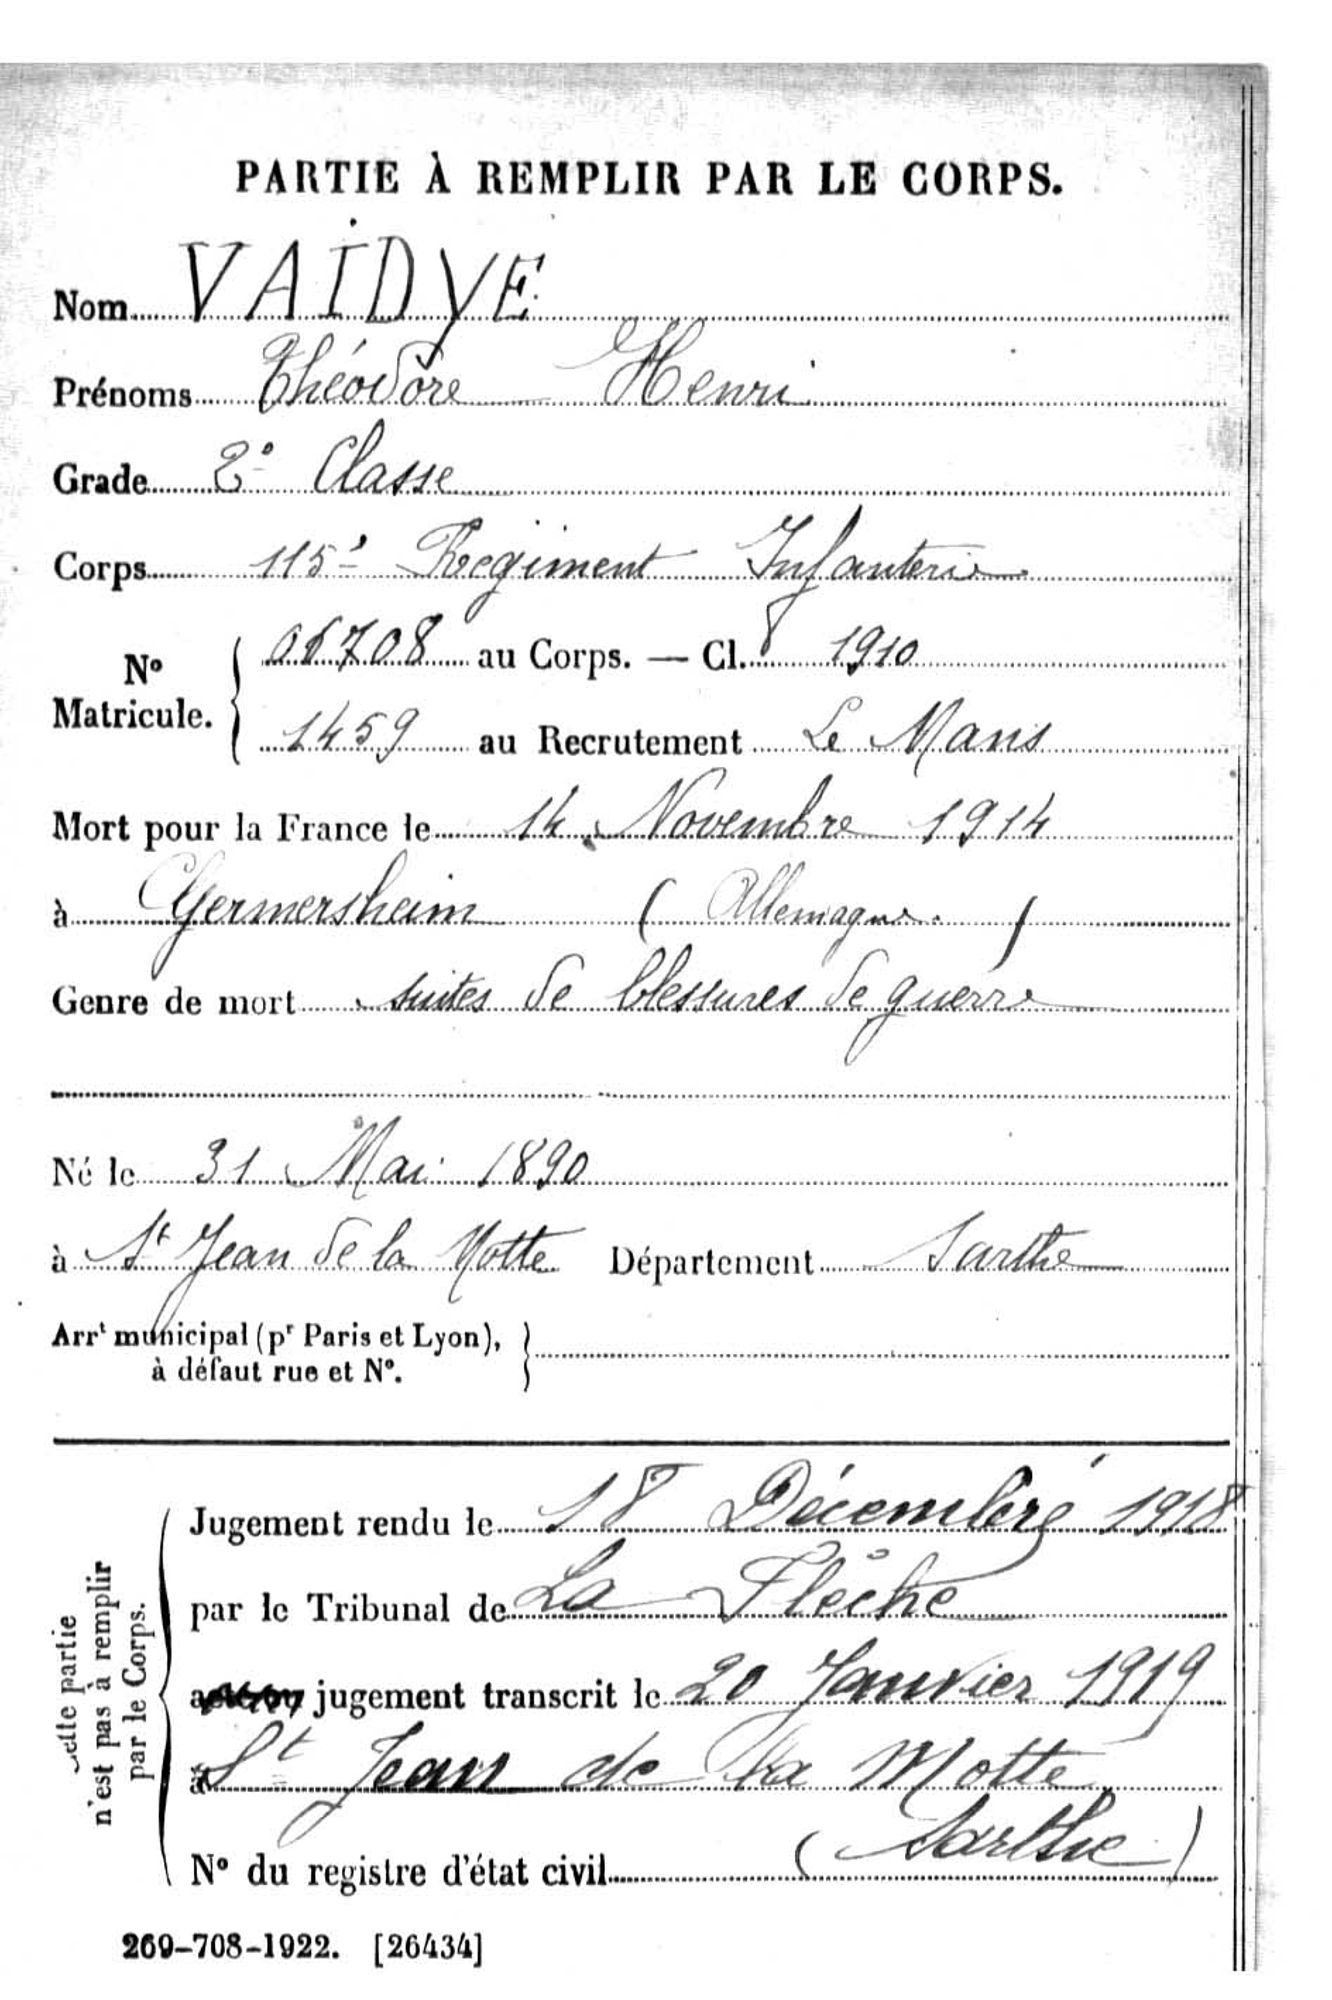 PARTIE À REMPLIR PAR LE CORPS.
Nom VAIDYE
Prénoms Théodore Henri
Grade 2e Classe
Corps 115e Regiment Infanterie
N° Matricule. 06708 au Corps. — Cl. 1910
1459 au Recrutement Le Mans
Mort pour la France le 14 Novembre 1914
à Germersheim (Allemagne.)
Genre de mort suites de blessures de guerre
Né le 31 Mai 1890
à St Jean de la Motte Département Sarthe
Arrt municipal (pr Paris et Lyon),
à défaut rue et N°.
Cette partie
n'est pas à remplir
par le Corps.
Jugement rendu le 18 Décembre 1918
par le Tribunal de La Flèche
jugement transcrit le 20 Janvier 1919
à St Jean de la Motte
(Sarthe)
N° du registre d'état civil
269-708-1922. [26434]